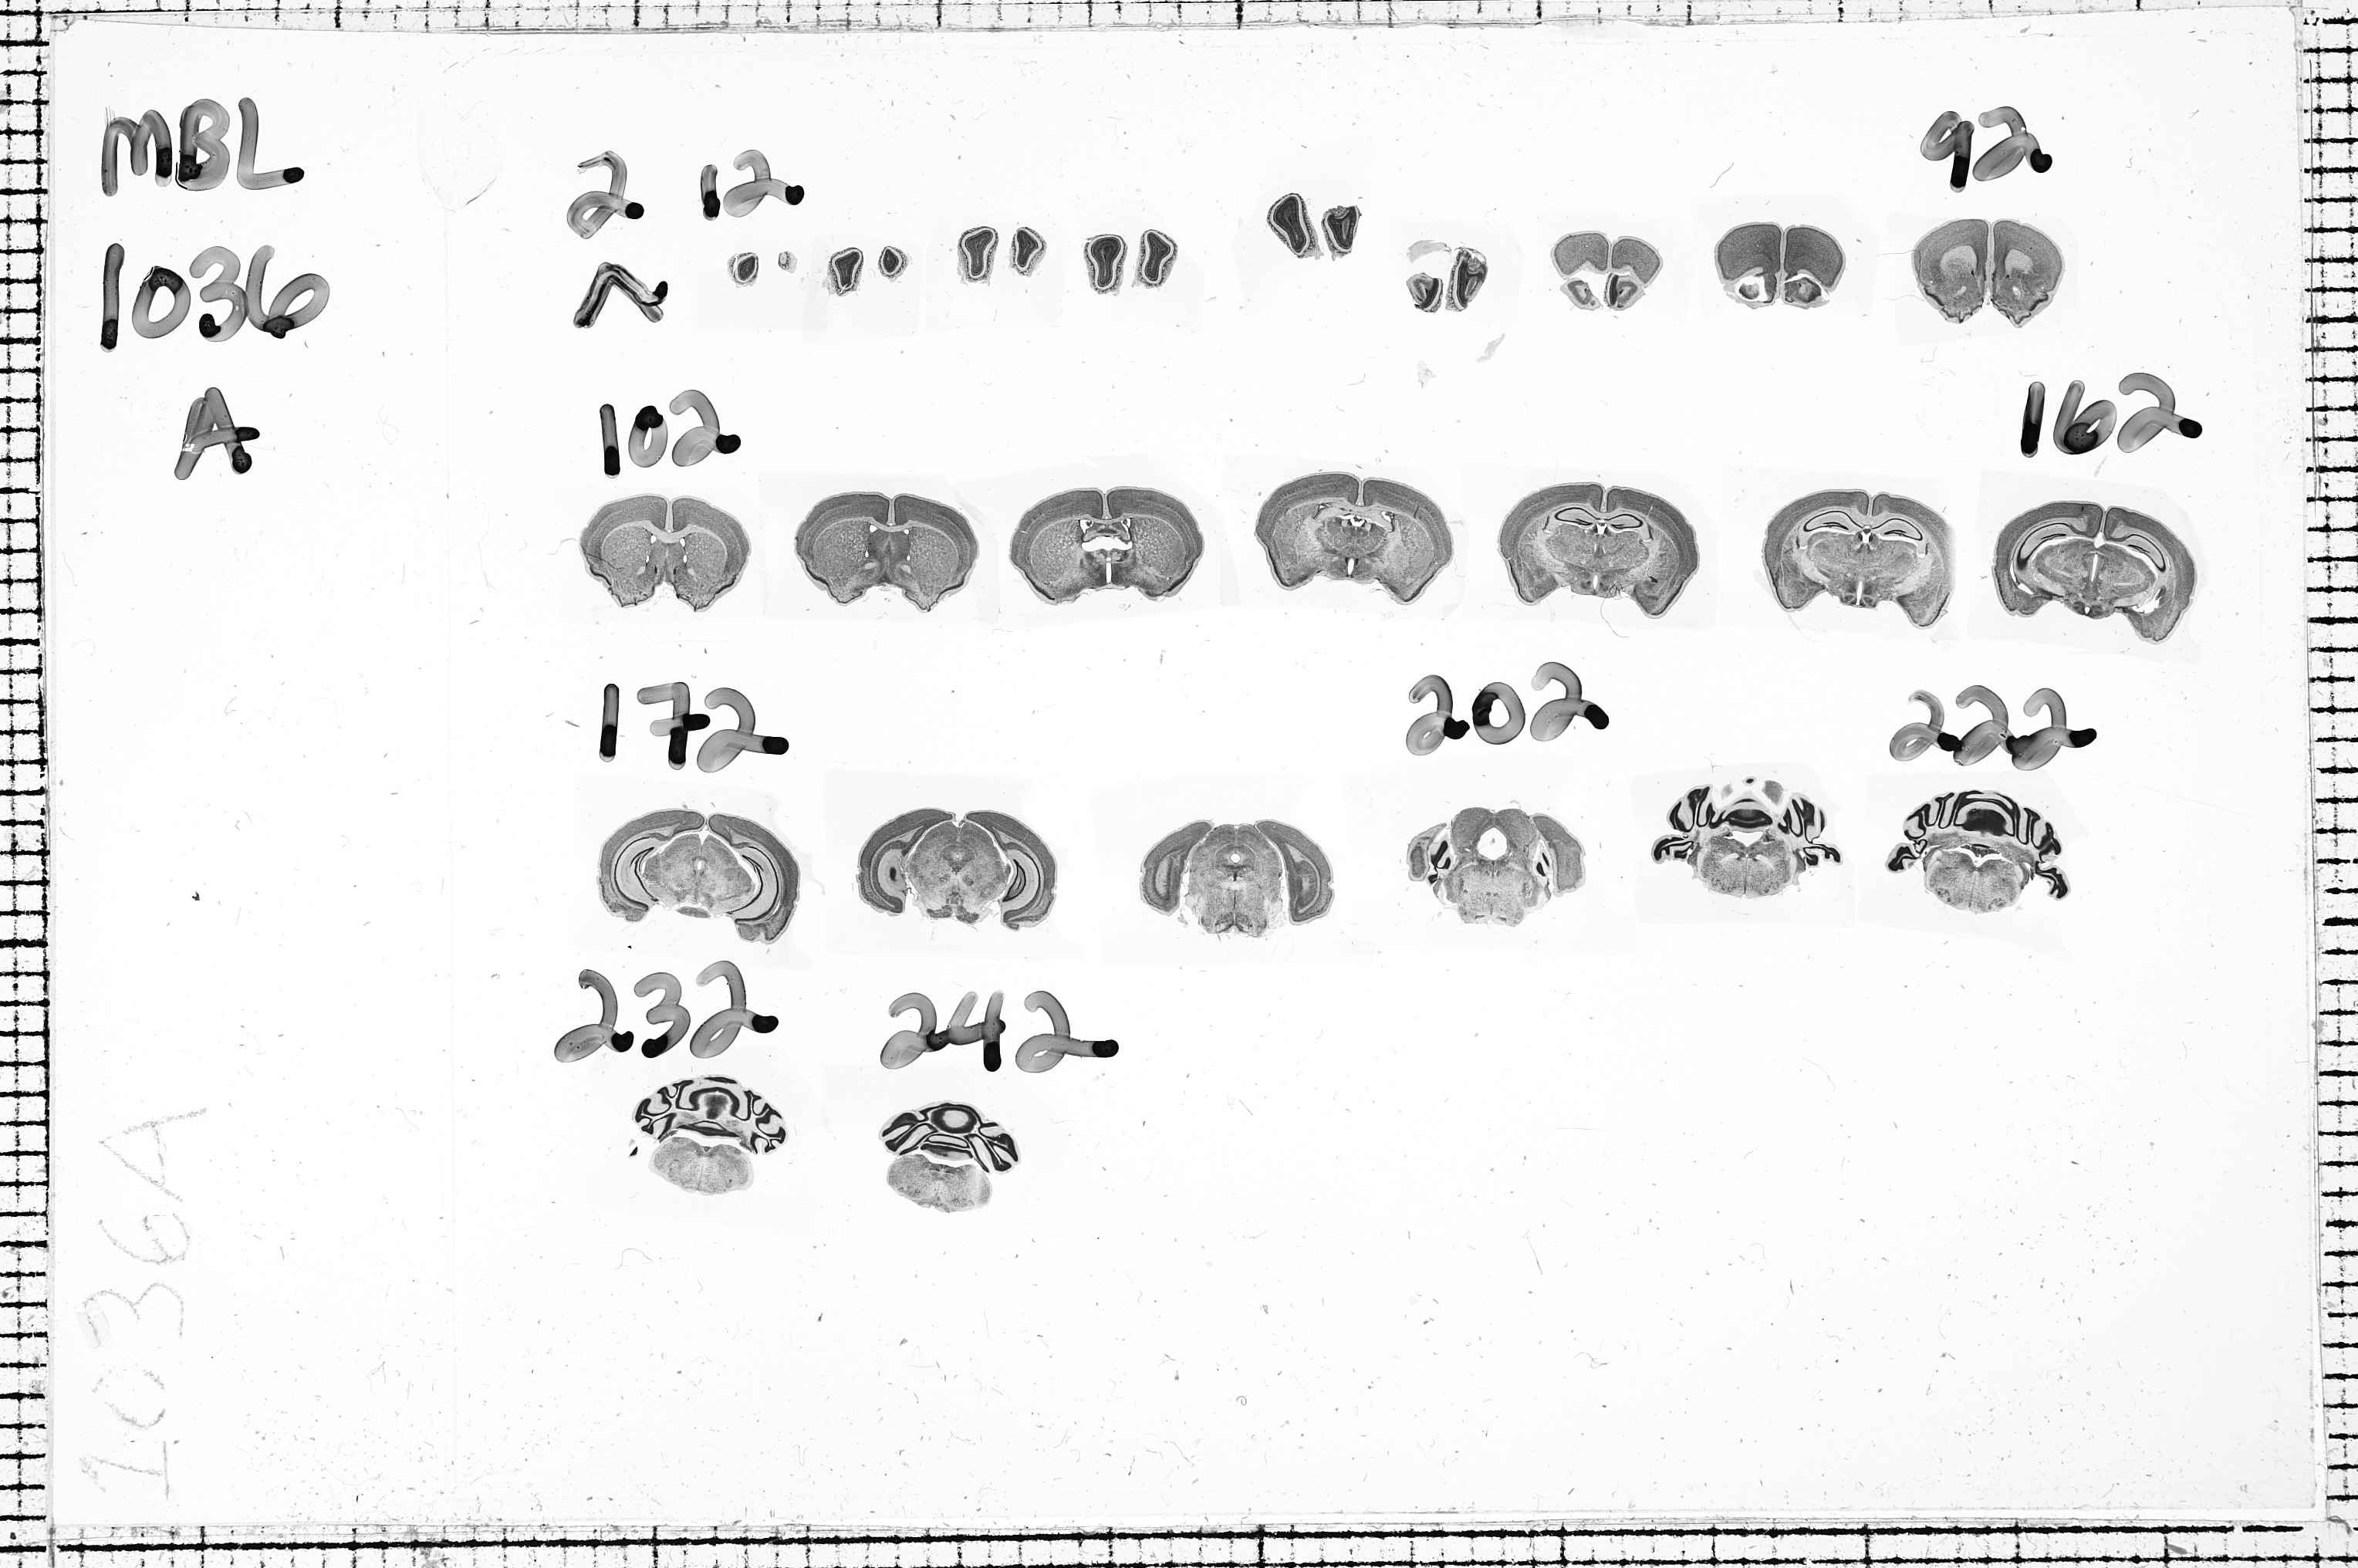 MBL
1036
A
2 12 92
102 162
172 202 222
232 242
1036A